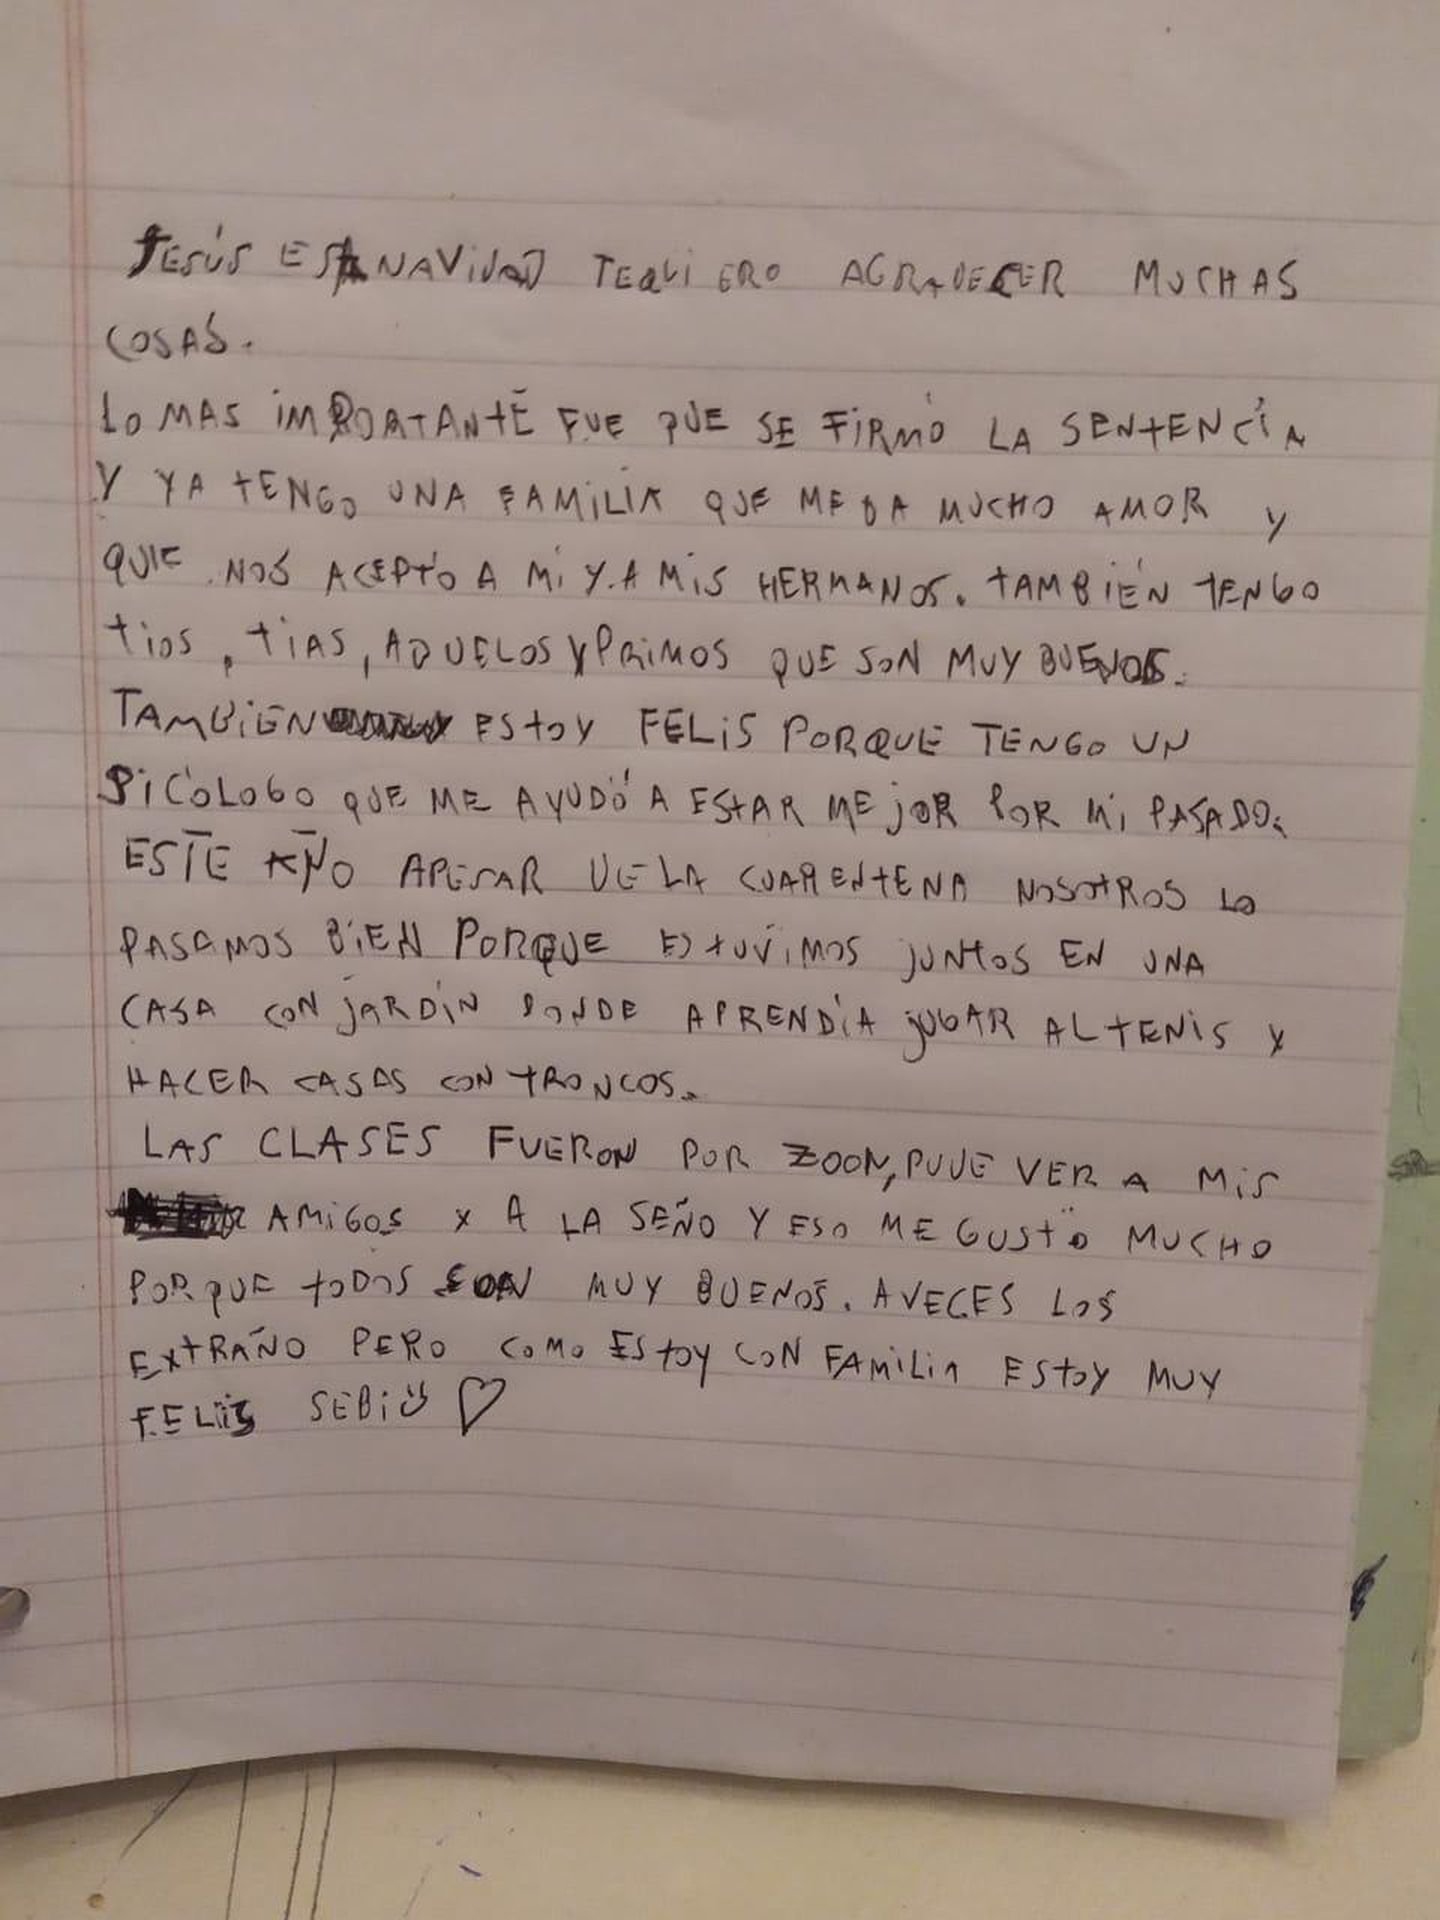 JESÚS ESTA NAVIDAD TEQUIERO AGRADECER MUCHAS
COSAS.
LO MAS IMPORTANTE FUE QUE SE FIRMÓ LA SENTENCÍA
Y YA TENGO UNA FAMILIA QUE ME DA MUCHO AMOR Y
QUIE NOS ACEPTÓ A MI Y A MIS HERMANOS. TAMBIÉN TENGO
tios, tIAS, ABUELOS Y PRIMOS QUE SON MUY BUENOS.
TAMBIEN ESTOY FELIS PORQUE TENGO UN
SICÓLOGO QUE ME AYUDÓ A ESTAR MEJOR POR MI PASADO.
ESTE AÑO APESAR DE LA CUARENTENA NOSOTROS LO
PASAMOS BIEN PORQUE ESTUVIMOS JUNTOS EN UNA
CASA CON JARDÍN DONDE APRENDÍA JUGAR AL TENIS Y
HACER CASAS CON TRONCOS.
LAS CLASES FUERON POR ZOON, PUDE VER A MIS
AMIGOS Y A LA SEÑO Y ESO ME GUSTÓ MUCHO
PORQUE TODOS SON MUY BUENOS. AVECES LOS
EXTRAÑO PERO COMO ESTOY CON FAMILIA ESTOY MUY
FELIS SEBI